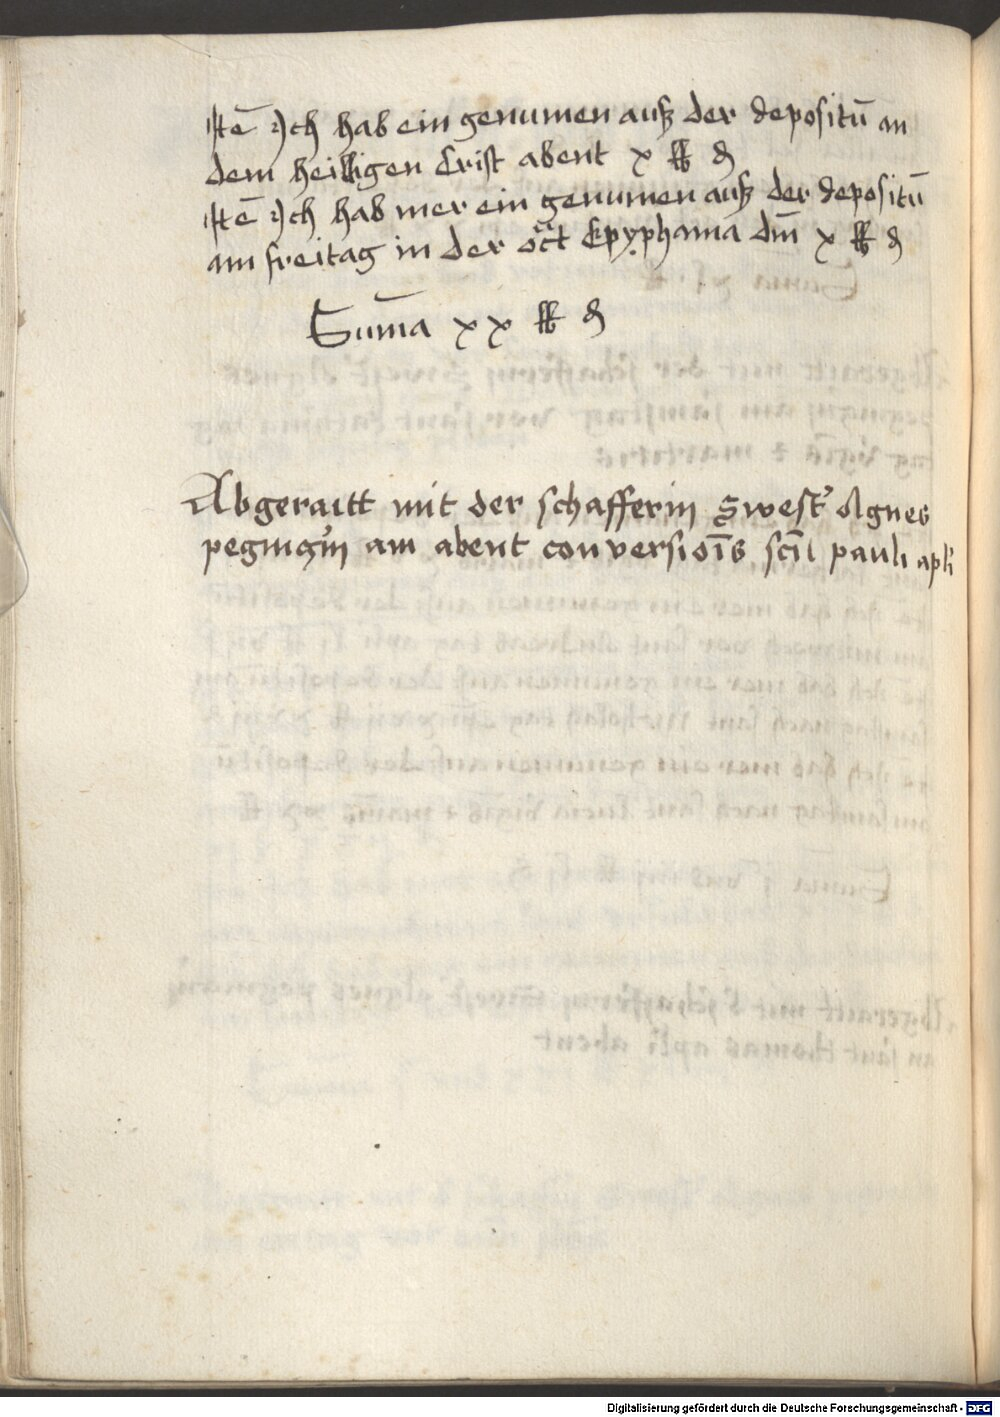 Itē Ich hab ein genumen auß der depositū an
dem heilligen Crist abent x ℔ ₰
Itē Ich hab mer ein genumen auß der depositū
am freitag in der oct Epyphania dm̄ x ℔ ₰
Sum̄a xx ℔ ₰
Abgeraitt mit der schafferin Swest' Agnes
am abent conversiōis sc̄i pauli apl'i
Digitalisierung gefördert durch die Deutsche Forschungsgemeinschaft - DFG